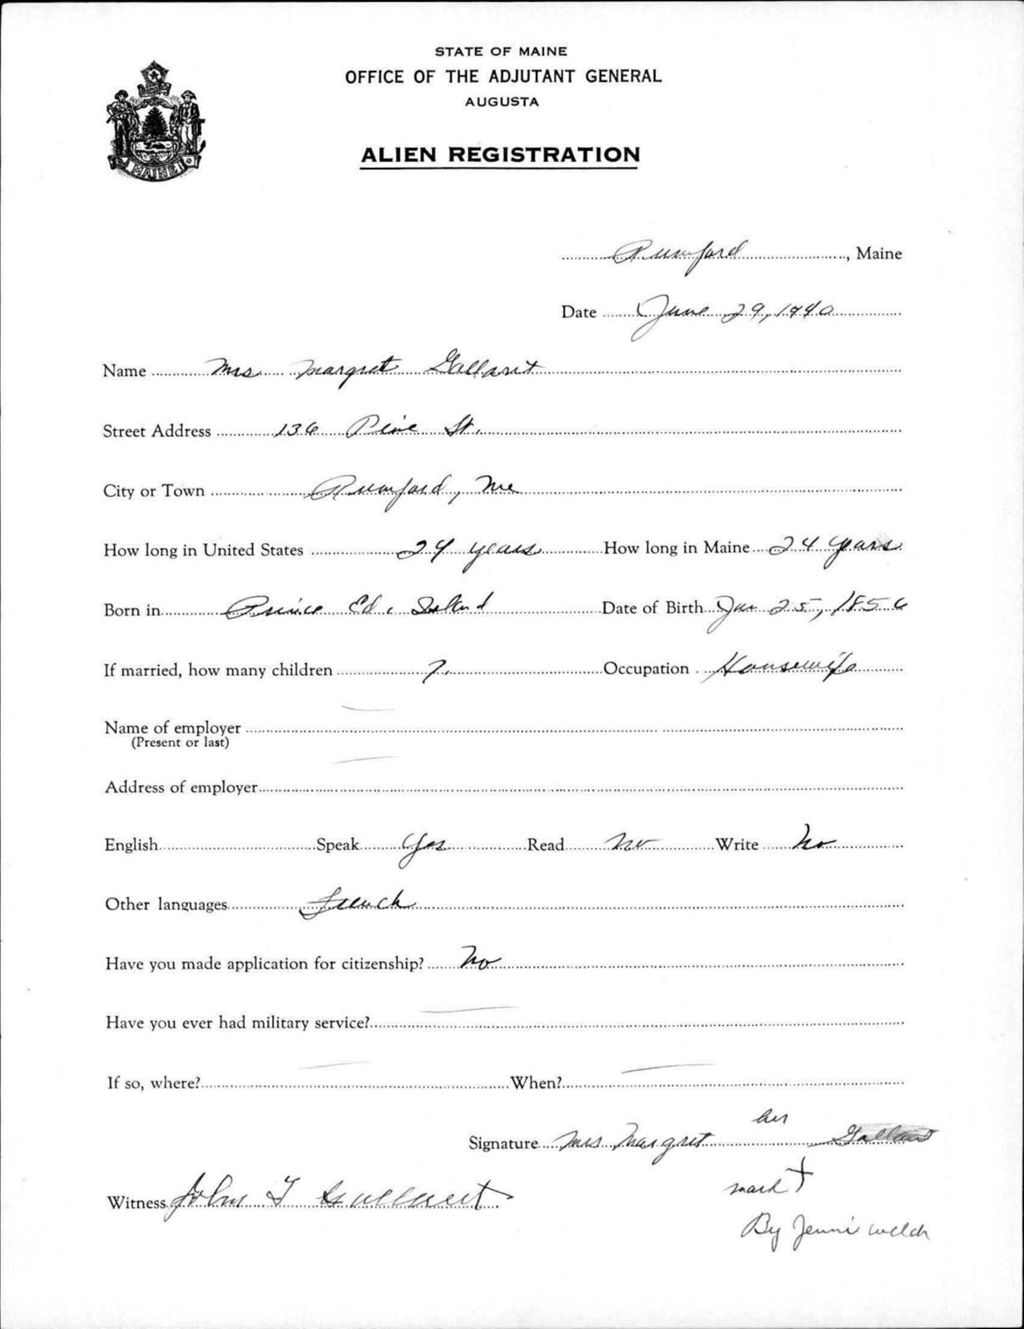 STATE OF MAINE
OFFICE OF THE ADJUTANT GENERAL
AUGUSTA
ALIEN REGISTRATION
MAINE
Rumford, Maine
Date June 29, 1940
Name Mrs Margret Gallant
Street Address 136 Pine St.
City or Town Rumford, Me
How long in United States 24 years How long in Maine 24 years
Born in Prince Ed. Island Date of Birth Jan 25, 1856
If married, how many children 7. Occupation Housewife
Name of employer
(Present or last)
Address of employer
English Speak Yes Read No Write No
Other languages French
Have you made application for citizenship? No
Have you ever had military service?
If so, where? When?
her
Signature Mrs Margret Gallant
mark +
Witness John T Gallant
By Jennie Welch